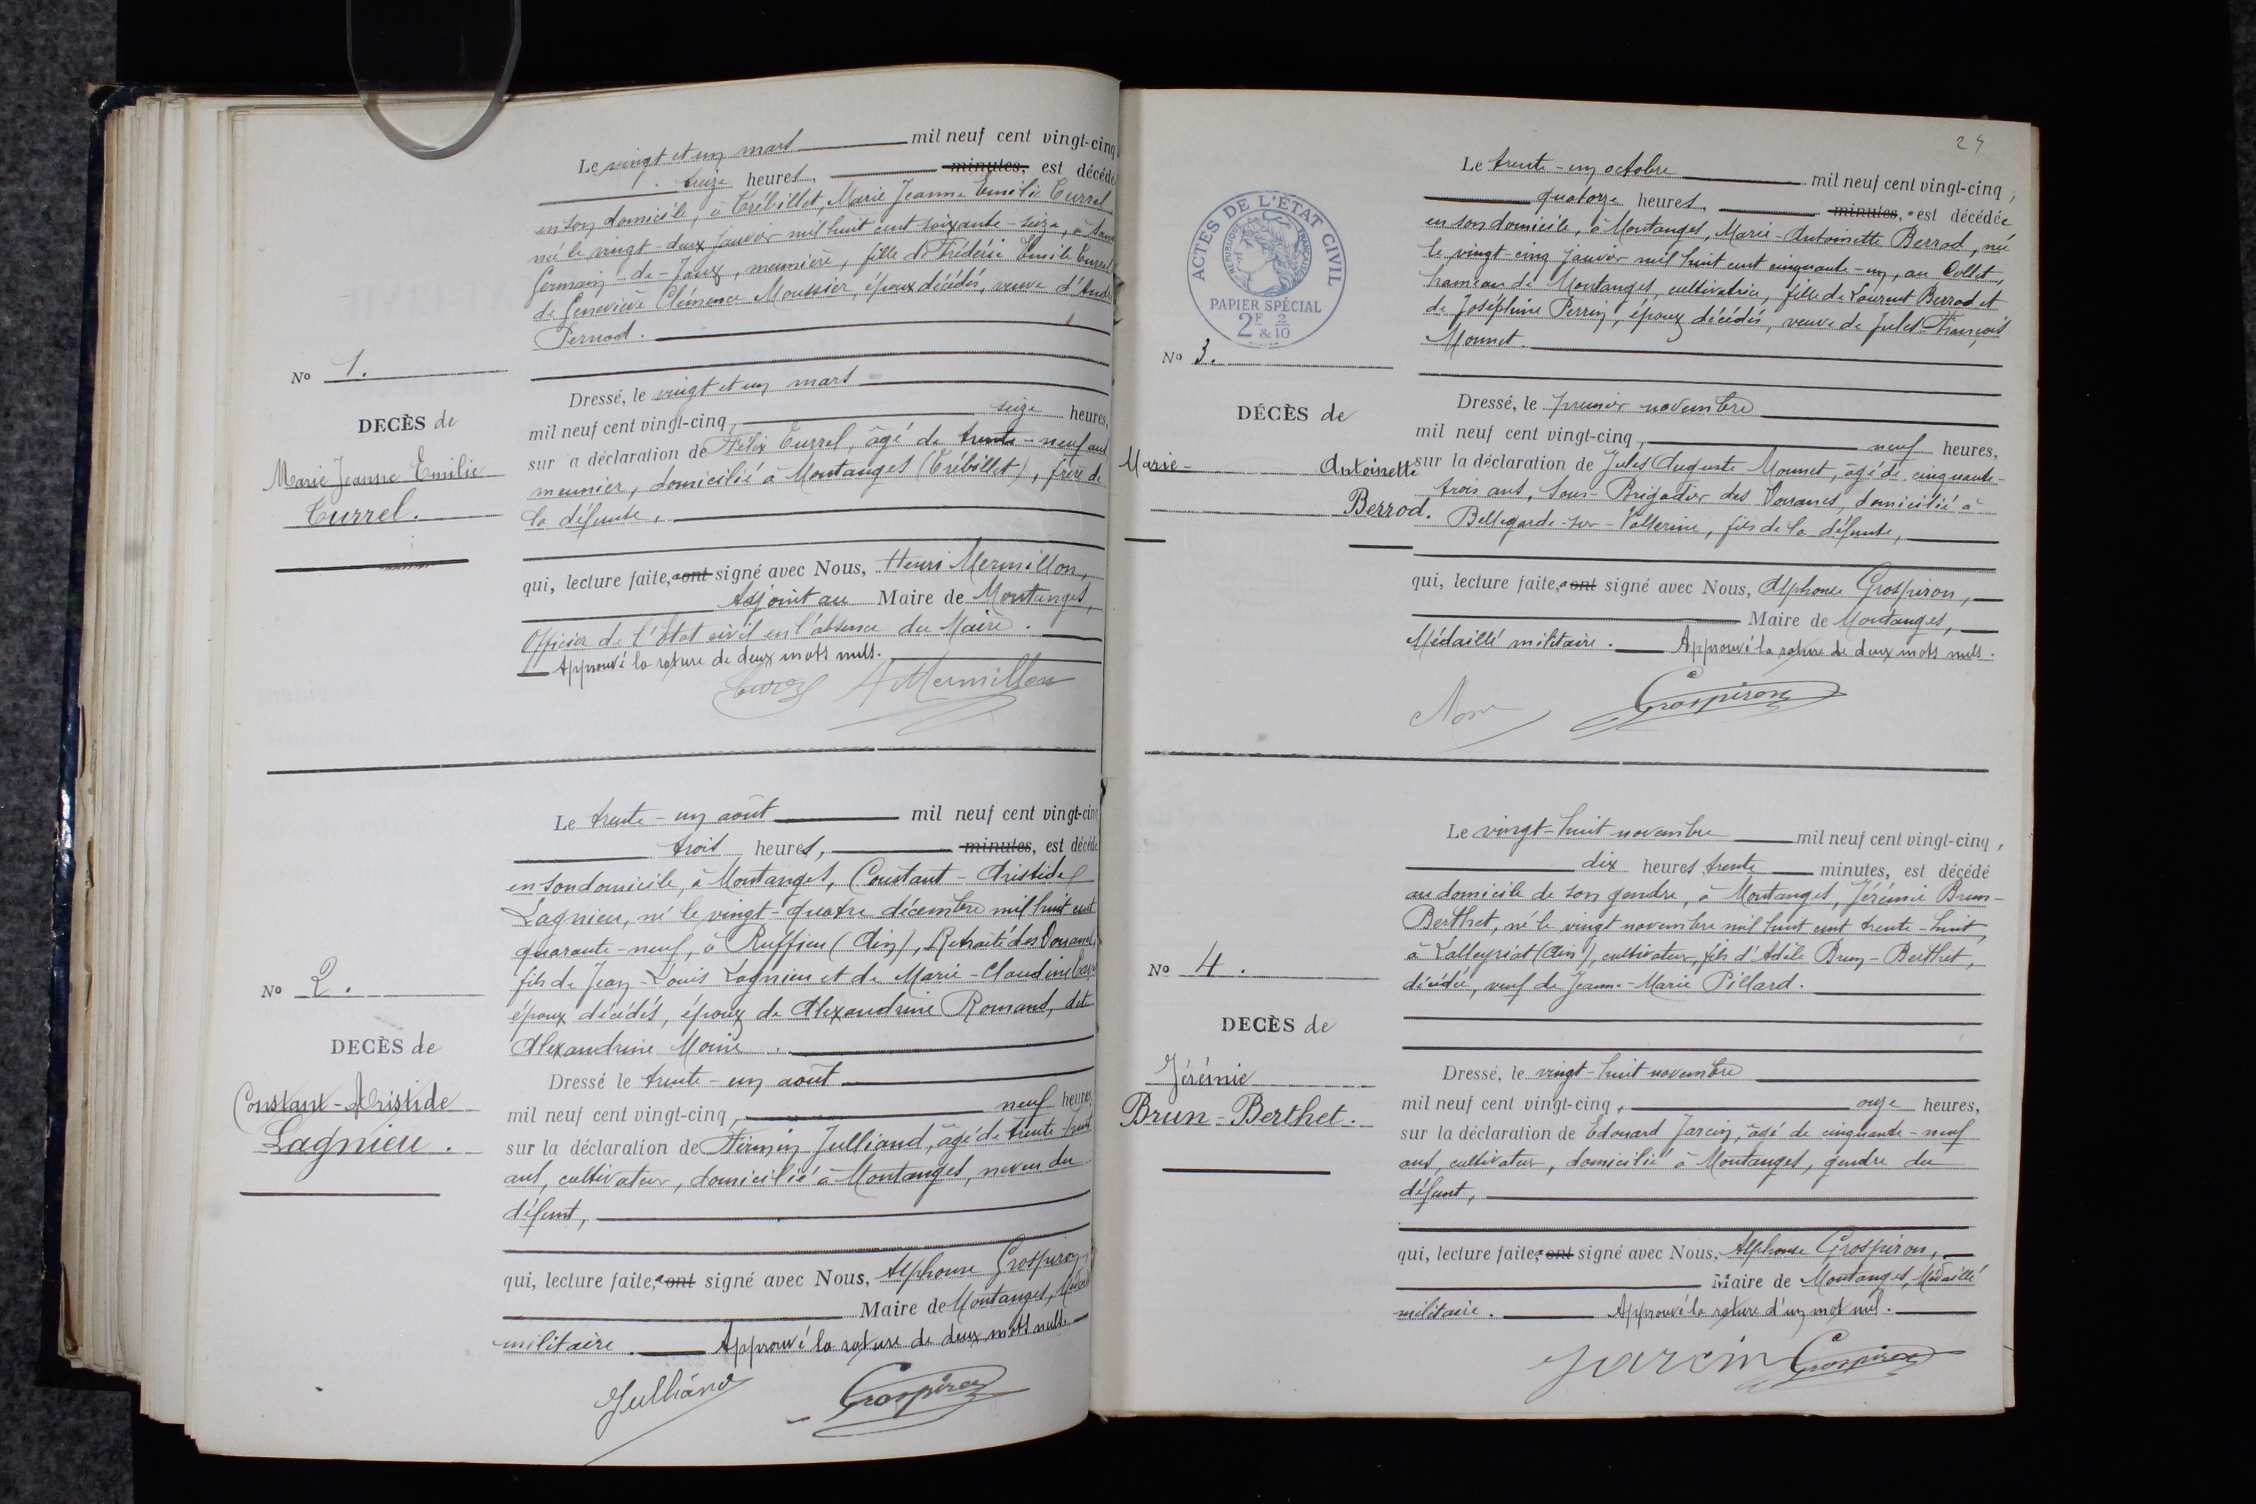 Le vingt et un mars mil neuf cent vingt-cinq
treize heures, minutes, est décédé
en son domicile, à Trébillet, Marie Jeanne Emilie Turrel
né le vingt-deux janvier mil huit cent soixante-seize, à
Germain-de-Joux, meunière, fille de Frédéric Emile Turrel
de Geneviève Clémence Moussier, époux décédés, veuve d'André
Pernod.
No 1.
DECÈS de
Marie Jeanne Emilie
Turrel.
Dressé, le vingt et un mars
mil neuf cent vingt-cinq, seize heures,
sur a déclaration de Félix Turrel, âgé de trente-neuf ans
meunier, domicilié à Montanges (Trébillet), frère de
la défunte,
qui, lecture faite, a ont signé avec Nous, Henri Mermillon,
Adjoint au Maire de Montanges,
Officier de l'état civil en l'absence du Maire.
Approuvé la rature de deux mots nuls.
H Mermillon
Le trente-un août mil neuf cent vingt-cinq
trois heures, minutes, est décédé
en son domicile, à Montanges, Constant-Aristide
Lagnieu, né le vingt-quatre décembre mil huit cent
quarante-neuf, à Ruffieu (Ain), Retraité des Douanes,
fils de Jean-Louis Lagnieu et de Marie-Claudine
époux décédés, époux de Alexandrine Romand, dit
Alexandrine Moine.
No 2.
DECÈS de
Constant-Aristide
Lagnieu.
Dressé le trente-un août
mil neuf cent vingt-cinq, neuf heures,
sur la déclaration de Firmin Julliand, âgé de trente-huit
ans, cultivateur, domicilié à Montanges, neveu du
défunt,
qui, lecture faite, a ont signé avec Nous, Alphonse Grospiron,
Maire de Montanges, Médaillé
militaire. Approuvé la rature de deux mots nuls.
Julliand Grospiron
24
Le trente-un octobre mil neuf cent vingt-cinq,
quatorze heures, minutes, est décédée
en son domicile, à Montanges, Marie-Antoinette Berrod, née
le vingt-cinq janvier mil huit cent cinquante-un, au Collet,
hameau de Montanges, cultivatrice, fille de Laurent Berrod et
de Joséphine Perrin, époux décédés, veuve de Jules-François
Mounet.
ACTES DE L'ÉTAT CIVIL
RÉPUBLIQUE FRANÇAISE
PAPIER SPÉCIAL
2F & 2/10
No 3.
DÉCÈS de
Marie-Antoinette
Berrod.
Dressé, le premier novembre
mil neuf cent vingt-cinq, neuf heures,
sur la déclaration de Jules Auguste Mounet, âgé de cinquante-
trois ans, Sous-Brigadier des Douanes, domicilié à
Bellegarde-sur-Valserine, fils de la défunte,
qui, lecture faite, a ont signé avec Nous, Alphonse Grospiron,
Maire de Montanges,
Médaillé militaire. Approuvé la rature de deux mots nuls.
Grospiron
Le vingt-huit novembre mil neuf cent vingt-cinq,
dix heures trente minutes, est décédé
au domicile de son gendre, à Montanges, Jérémie Brun-
Berthet, né le vingt novembre mil huit cent trente-huit,
à Lalleyriat (Ain), cultivateur, fils d'Adèle Brun-Berthet,
décédée, veuf de Jeanne-Marie Pillard.
No 4.
DECÈS de
Jérémie
Brun-Berthet.
Dressé, le vingt-huit novembre
mil neuf cent vingt-cinq, onze heures,
sur la déclaration de Edouard Jarcin, âgé de cinquante-neuf
ans, cultivateur, domicilié à Montanges, gendre du
défunt,
qui, lecture faite, a ont signé avec Nous, Alphonse Grospiron,
Maire de Montanges, Médaillé
militaire. Approuvé la rature d'un mot nul.
Jarcin Grospiron